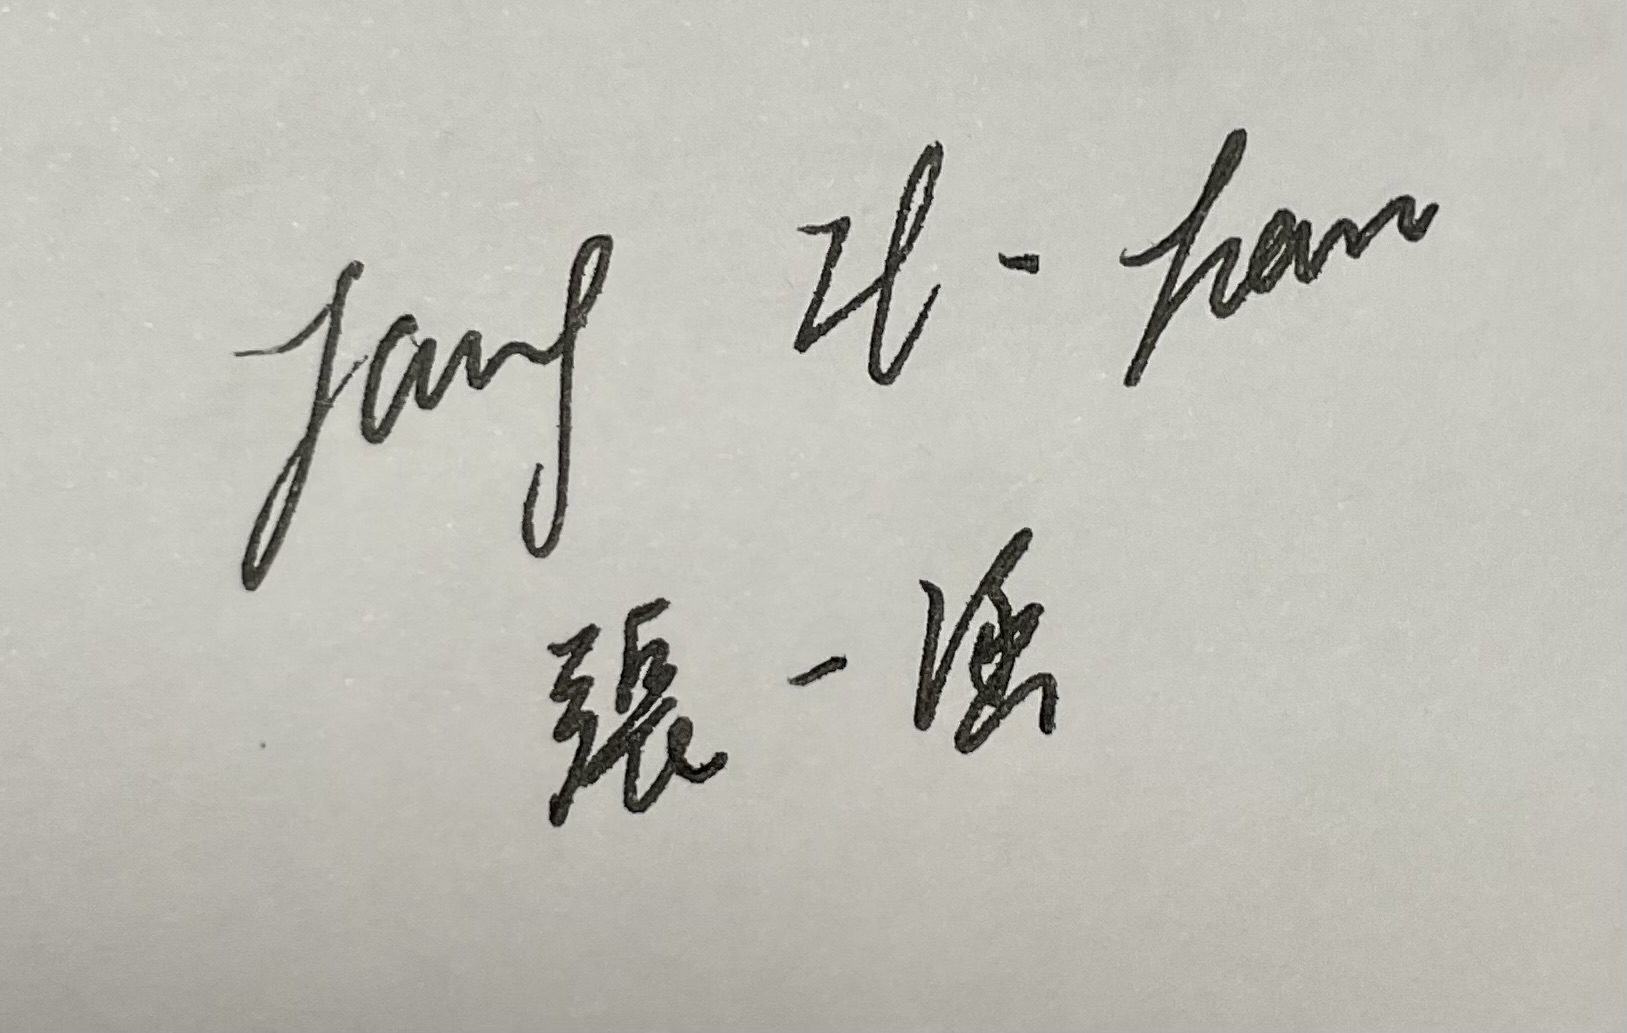 Jang Il-ham
張一涵